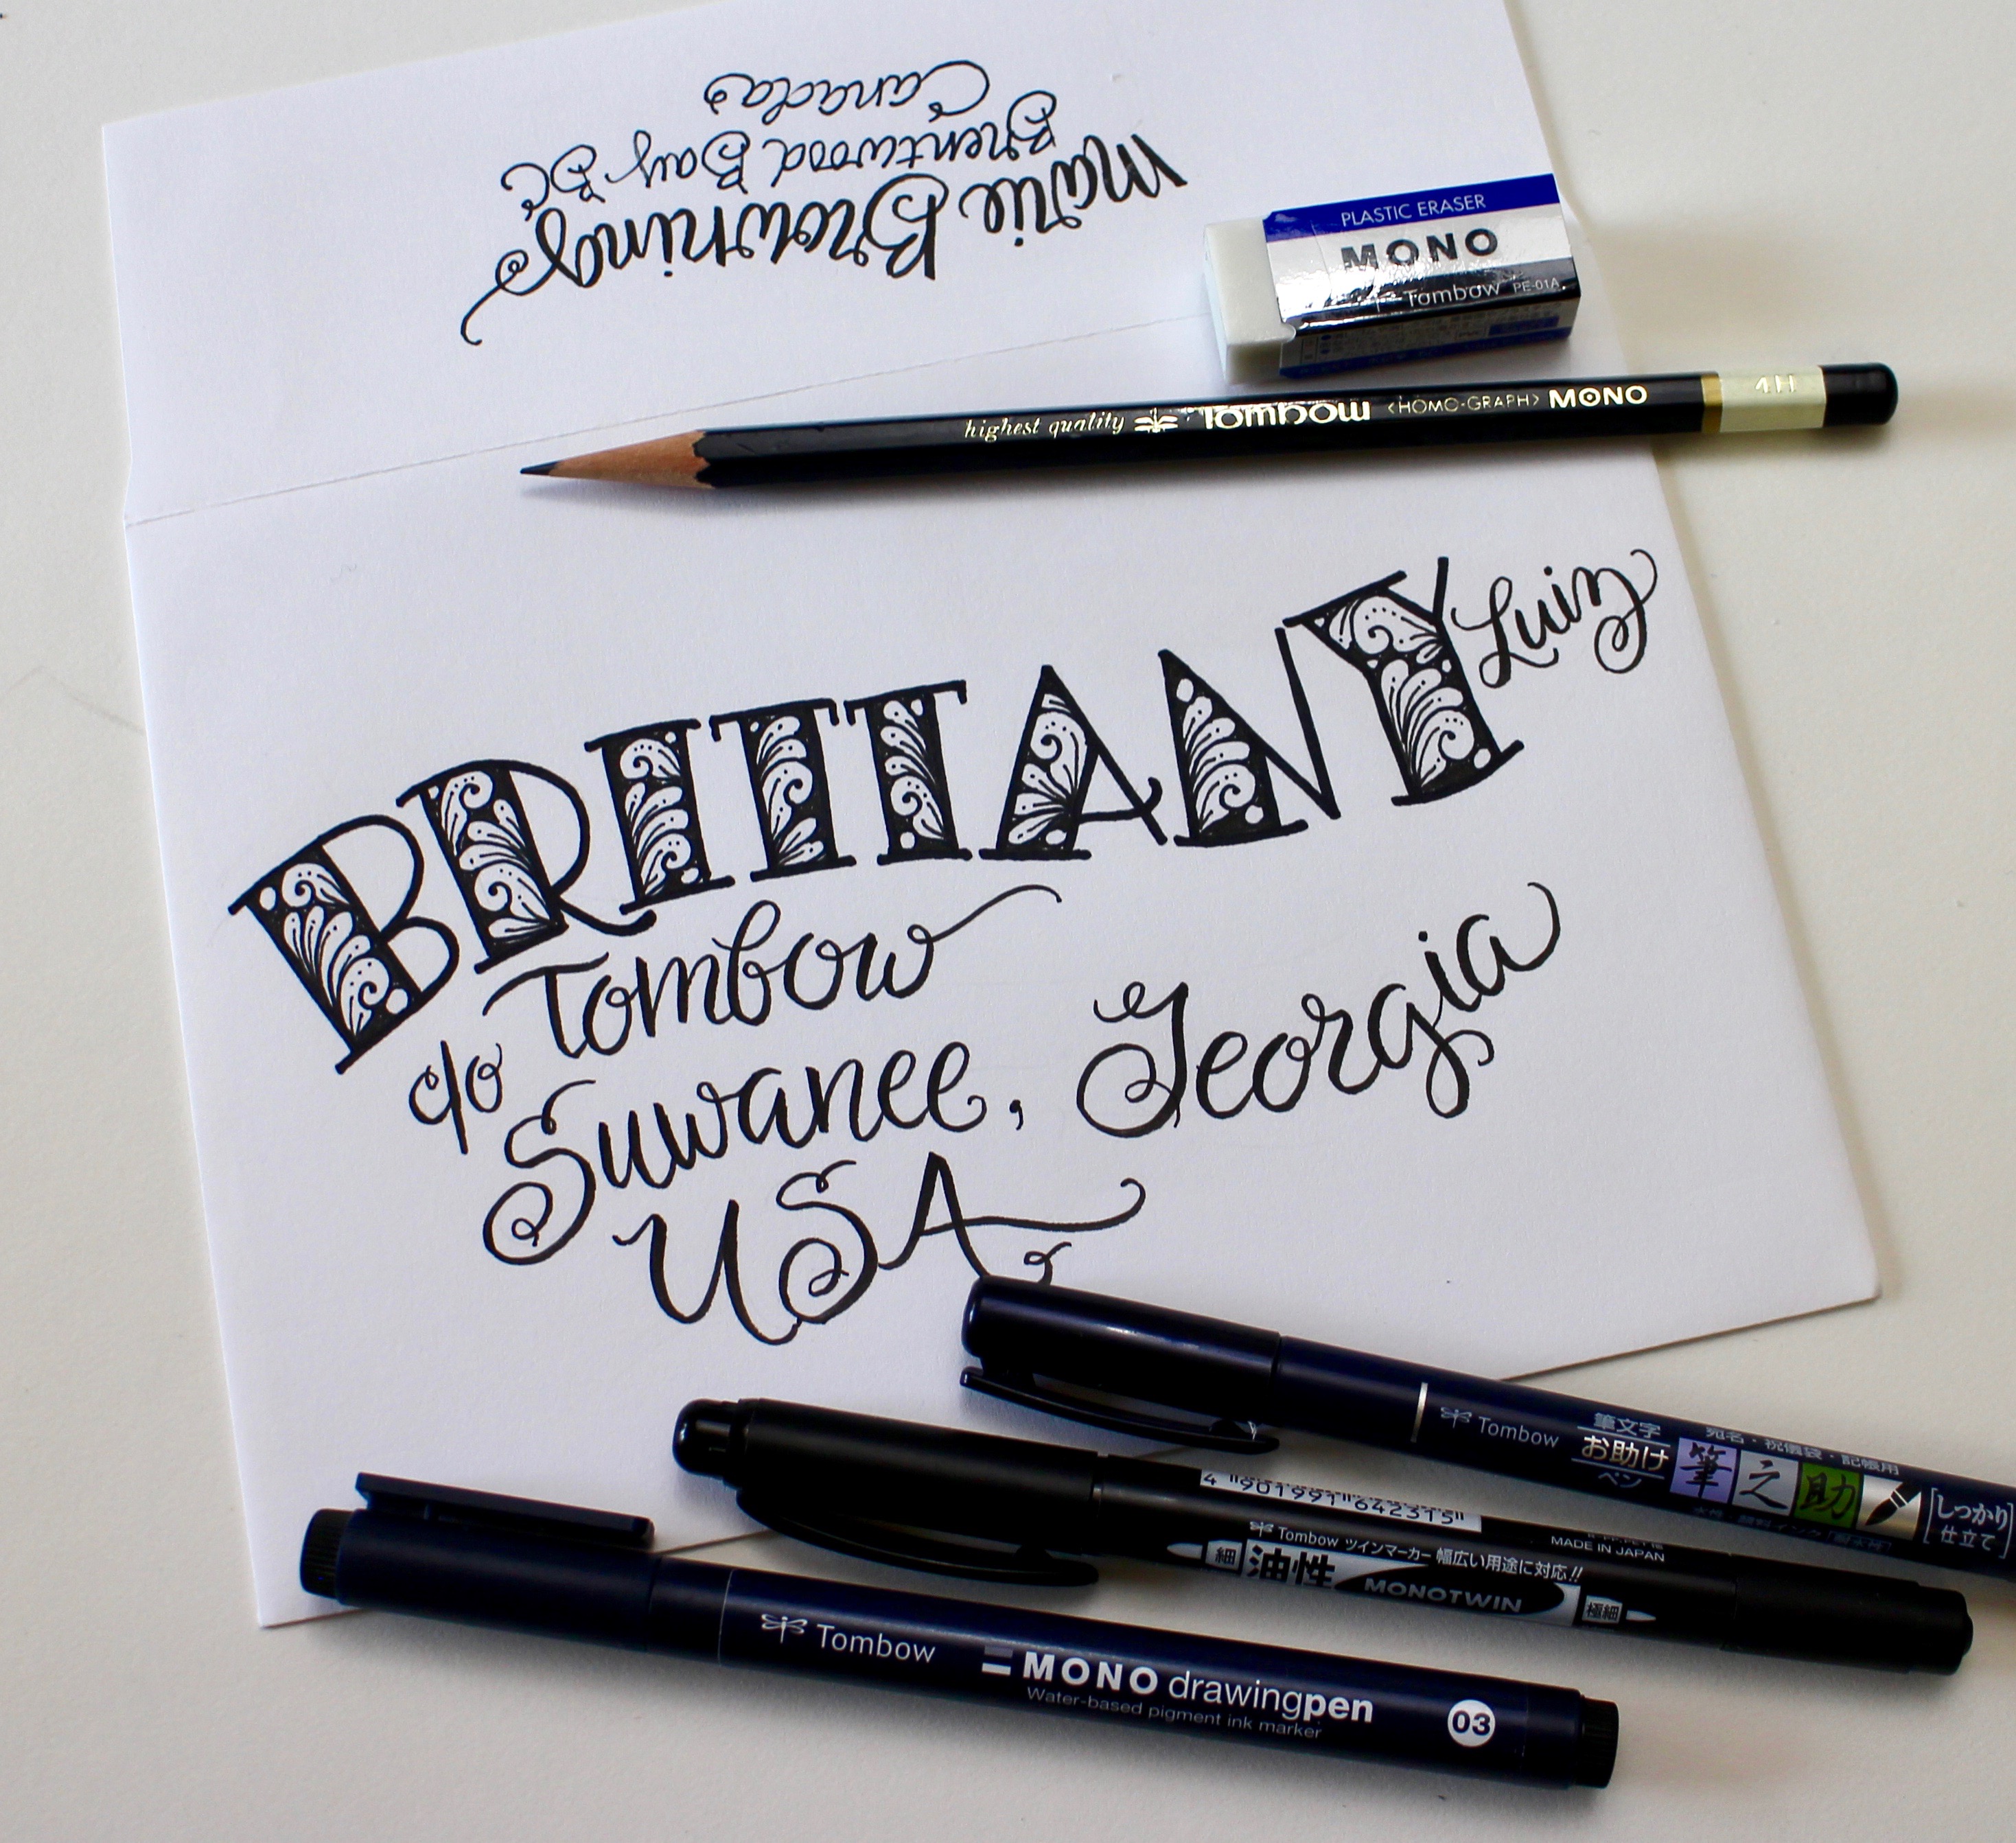 Marie Browning
Brentwood Bay BC
Canada
PLASTIC ERASER
MONO
Tombow PE-01A
highest quality Tombow <HOMO-GRAPH> MONO 4H
BRITTANY Luiz
c/o Tombow
Suwanee, Georgia
USA
Tombow
筆文字
お助け
ペン
宛名・祝儀袋・記帳用
筆之助
しっかり
仕立て
4 901991 642315
Tombow ツインマーカー 幅広い用途に対応!!
MADE IN JAPAN
細 油性 MONOTWIN 極細
Tombow MONO drawingpen 03
Water-based pigment ink marker